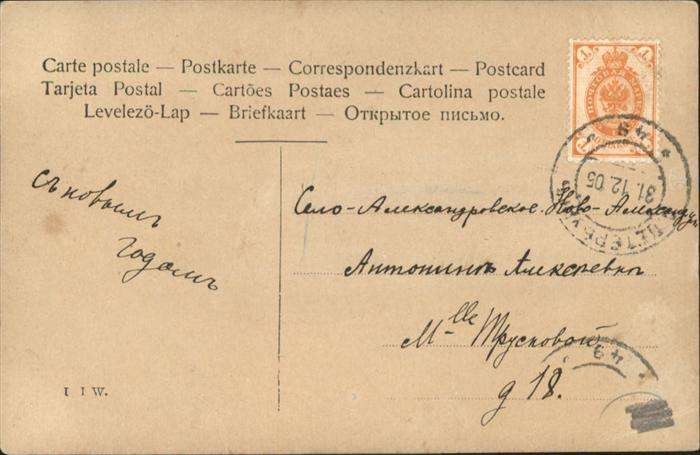 Carte postale — Postkarte — Correspondenzkart — Postcard
Tarjeta Postal — Cartões Postaes — Cartolina postale
Levelező-Lap — Briefkaart — Открытое письмо.
1 1
49
31.12.05
ПЕТЕРБУ
съ новымъ
годомъ
Село-Александровское Ново-Александр
Антонинѣ Алексѣевнѣ
Mlle Трусковой
д 18.
49
I I W.